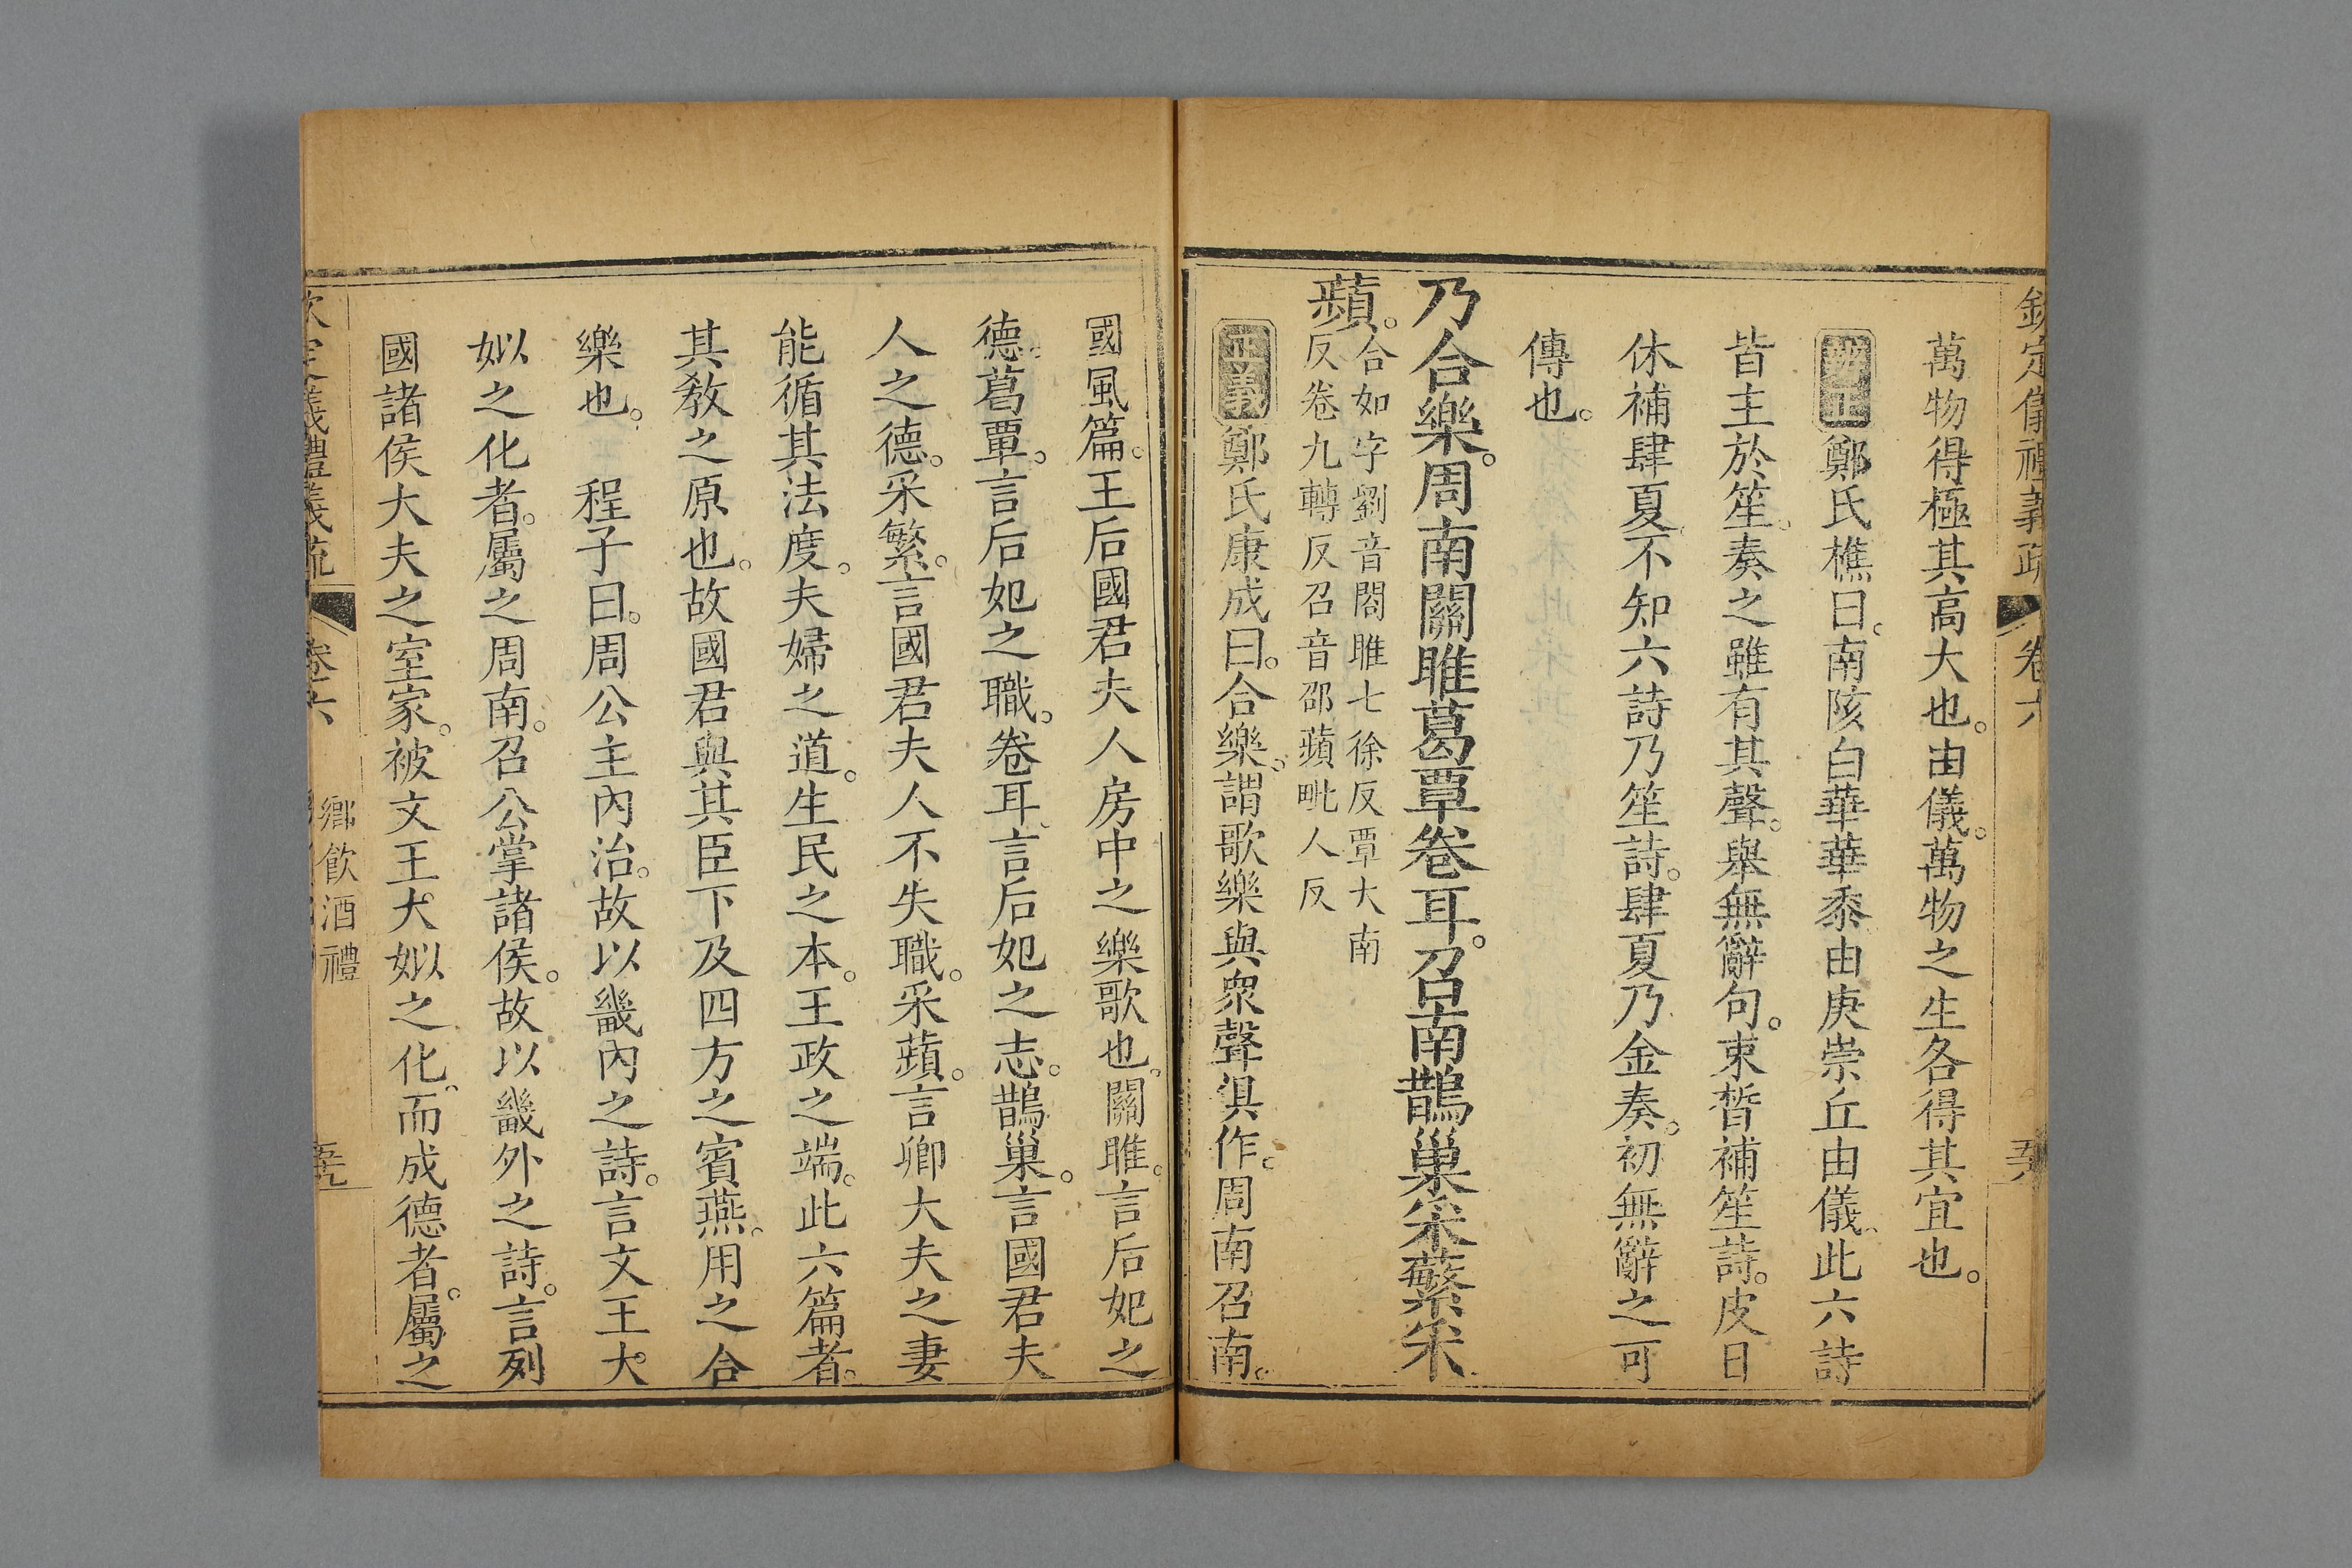 欽定儀禮義疏 卷六
萬物得極其高大也。由儀。萬物之生各得其宜也。
辨正 鄭氏樵曰。南陔白華華黍由庚崇丘由儀。此六詩
皆主於笙。奏之雖有其聲。舉無辭句。束晳補笙詩。皮日
休補肆夏。不知六詩乃笙詩。肆夏乃金奏。初無辭之可
傳也。
乃合樂。周南關雎葛覃卷耳。召南鵲巢采蘩采
蘋。合如字劉音閤雎七徐反覃大南
反卷九轉反召音邵蘋毗人反
正義 鄭氏康成曰。合樂。謂歌樂與衆聲俱作。周南召南。
國風篇。王后國君夫人房中之樂歌也。關雎。言后妃之
德。葛覃。言后妃之職。卷耳。言后妃之志。鵲巢。言國君夫
人之德。采繁。言國君夫人不失職。采蘋。言卿大夫之妻
能循其法度。夫婦之道。生民之本。王政之端。此六篇者。
其敎之原也。故國君與其臣下及四方之賓燕。用之合
樂也。 程子曰。周公主內治。故以畿內之詩。言文王大
姒之化者。屬之周南。召公掌諸侯。故以畿外之詩。言列
國諸侯大夫之室家。被文王大姒之化。而成德者。屬之
欽定儀禮義疏 卷六 鄉飲酒禮